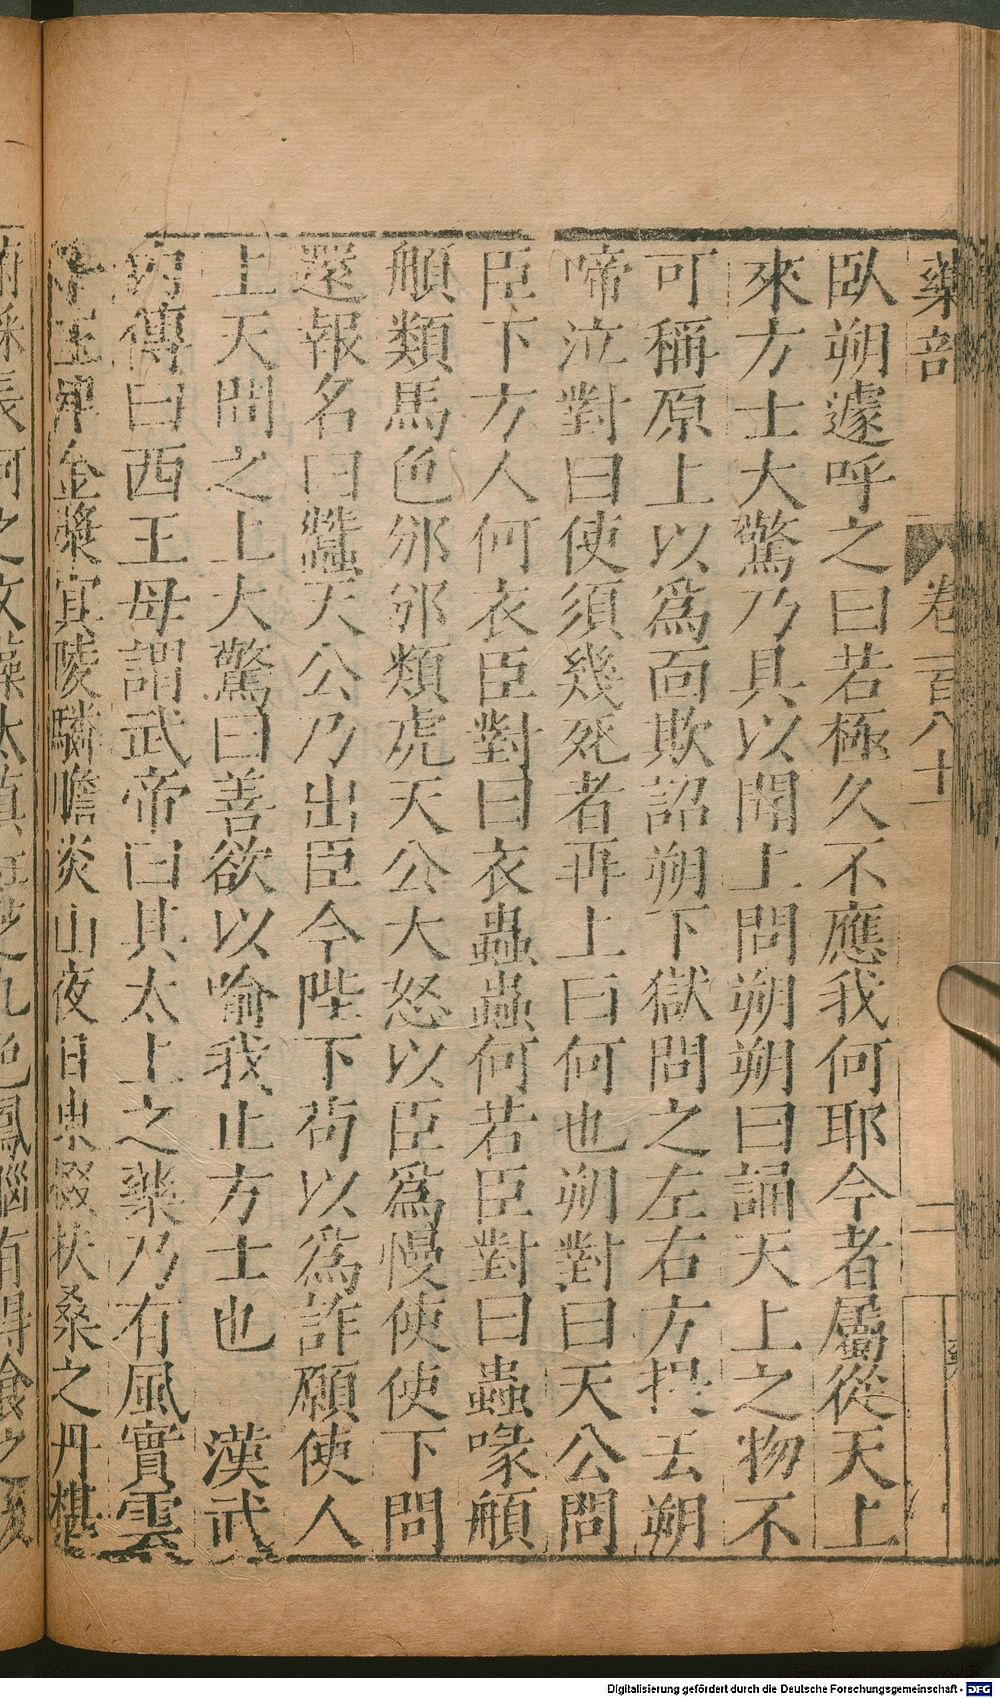 藥部
卷一百八十
二
臥朔遽呼之曰若極久不應我何耶今者屬從天上
來方士大驚乃具以聞上問朔朔曰誦天上之物不
可稱原上以為面欺詔朔下獄問之左右方提去朔
啼泣對曰使須幾死者再上曰何也朔對曰天公問
臣下方人何衣臣對曰衣蟲蟲何若臣對曰蟲喙䫇
䫇類馬色邠邠類虎天公大怒以臣為慢使使下問
還報名曰蠶天公乃出臣今陛下苟以為詐願使人
上天問之上大驚曰善欲以喻我止方士也　漢武
內傳曰西王母謂武帝曰其太上之藥乃有風實雲
金漿宜陵麟膽炎山夜日東掇扶桑之丹椹
俯採長河之文藻太真虹芝九色鳳腦有得食之
Digitalisierung gefördert durch die Deutsche Forschungsgemeinschaft - DFG